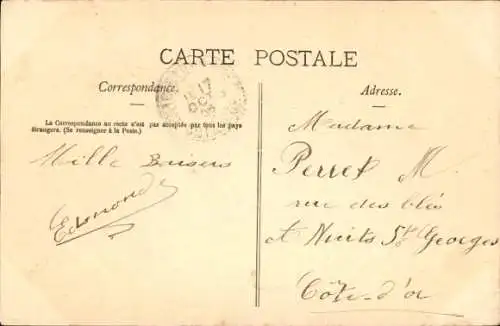 CARTE POSTALE
Correspondance.
La Correspondance au recto n'est pas acceptée par tous les pays
étrangers. (Se renseigner à la Poste.)
Mille Baisers
Edmonde
17
OCT
Adresse.
Madame
Perret M.
rue des blés
et Nuits St Georges
Côte-d'or